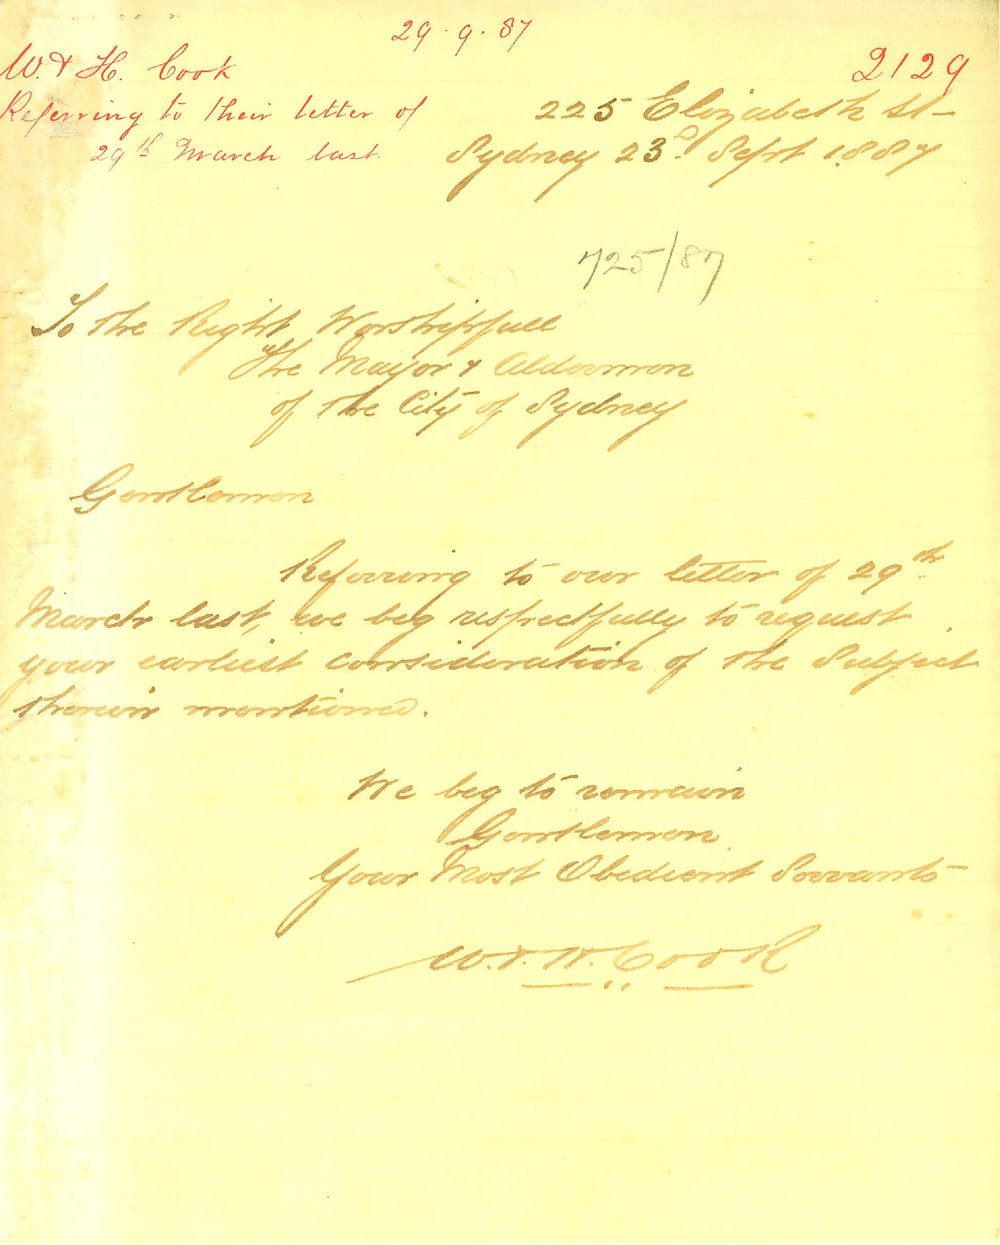 29.9.87
W. & H. Cook
Referring to their letter of
29th March last.
2129
225 Elizabeth St
Sydney 23d Sept 1887
725/87
To the Right Worshipfull
The Mayor & Aldermen
of the City of Sydney
Gentlemen
Referring to our letter of 29th
March last, we beg respectfully to request
your earliest consideration of the Subject
therein mentioned.
We beg to remain
Gentlemen
Your Most Obedient Servants
W. & H. Cook